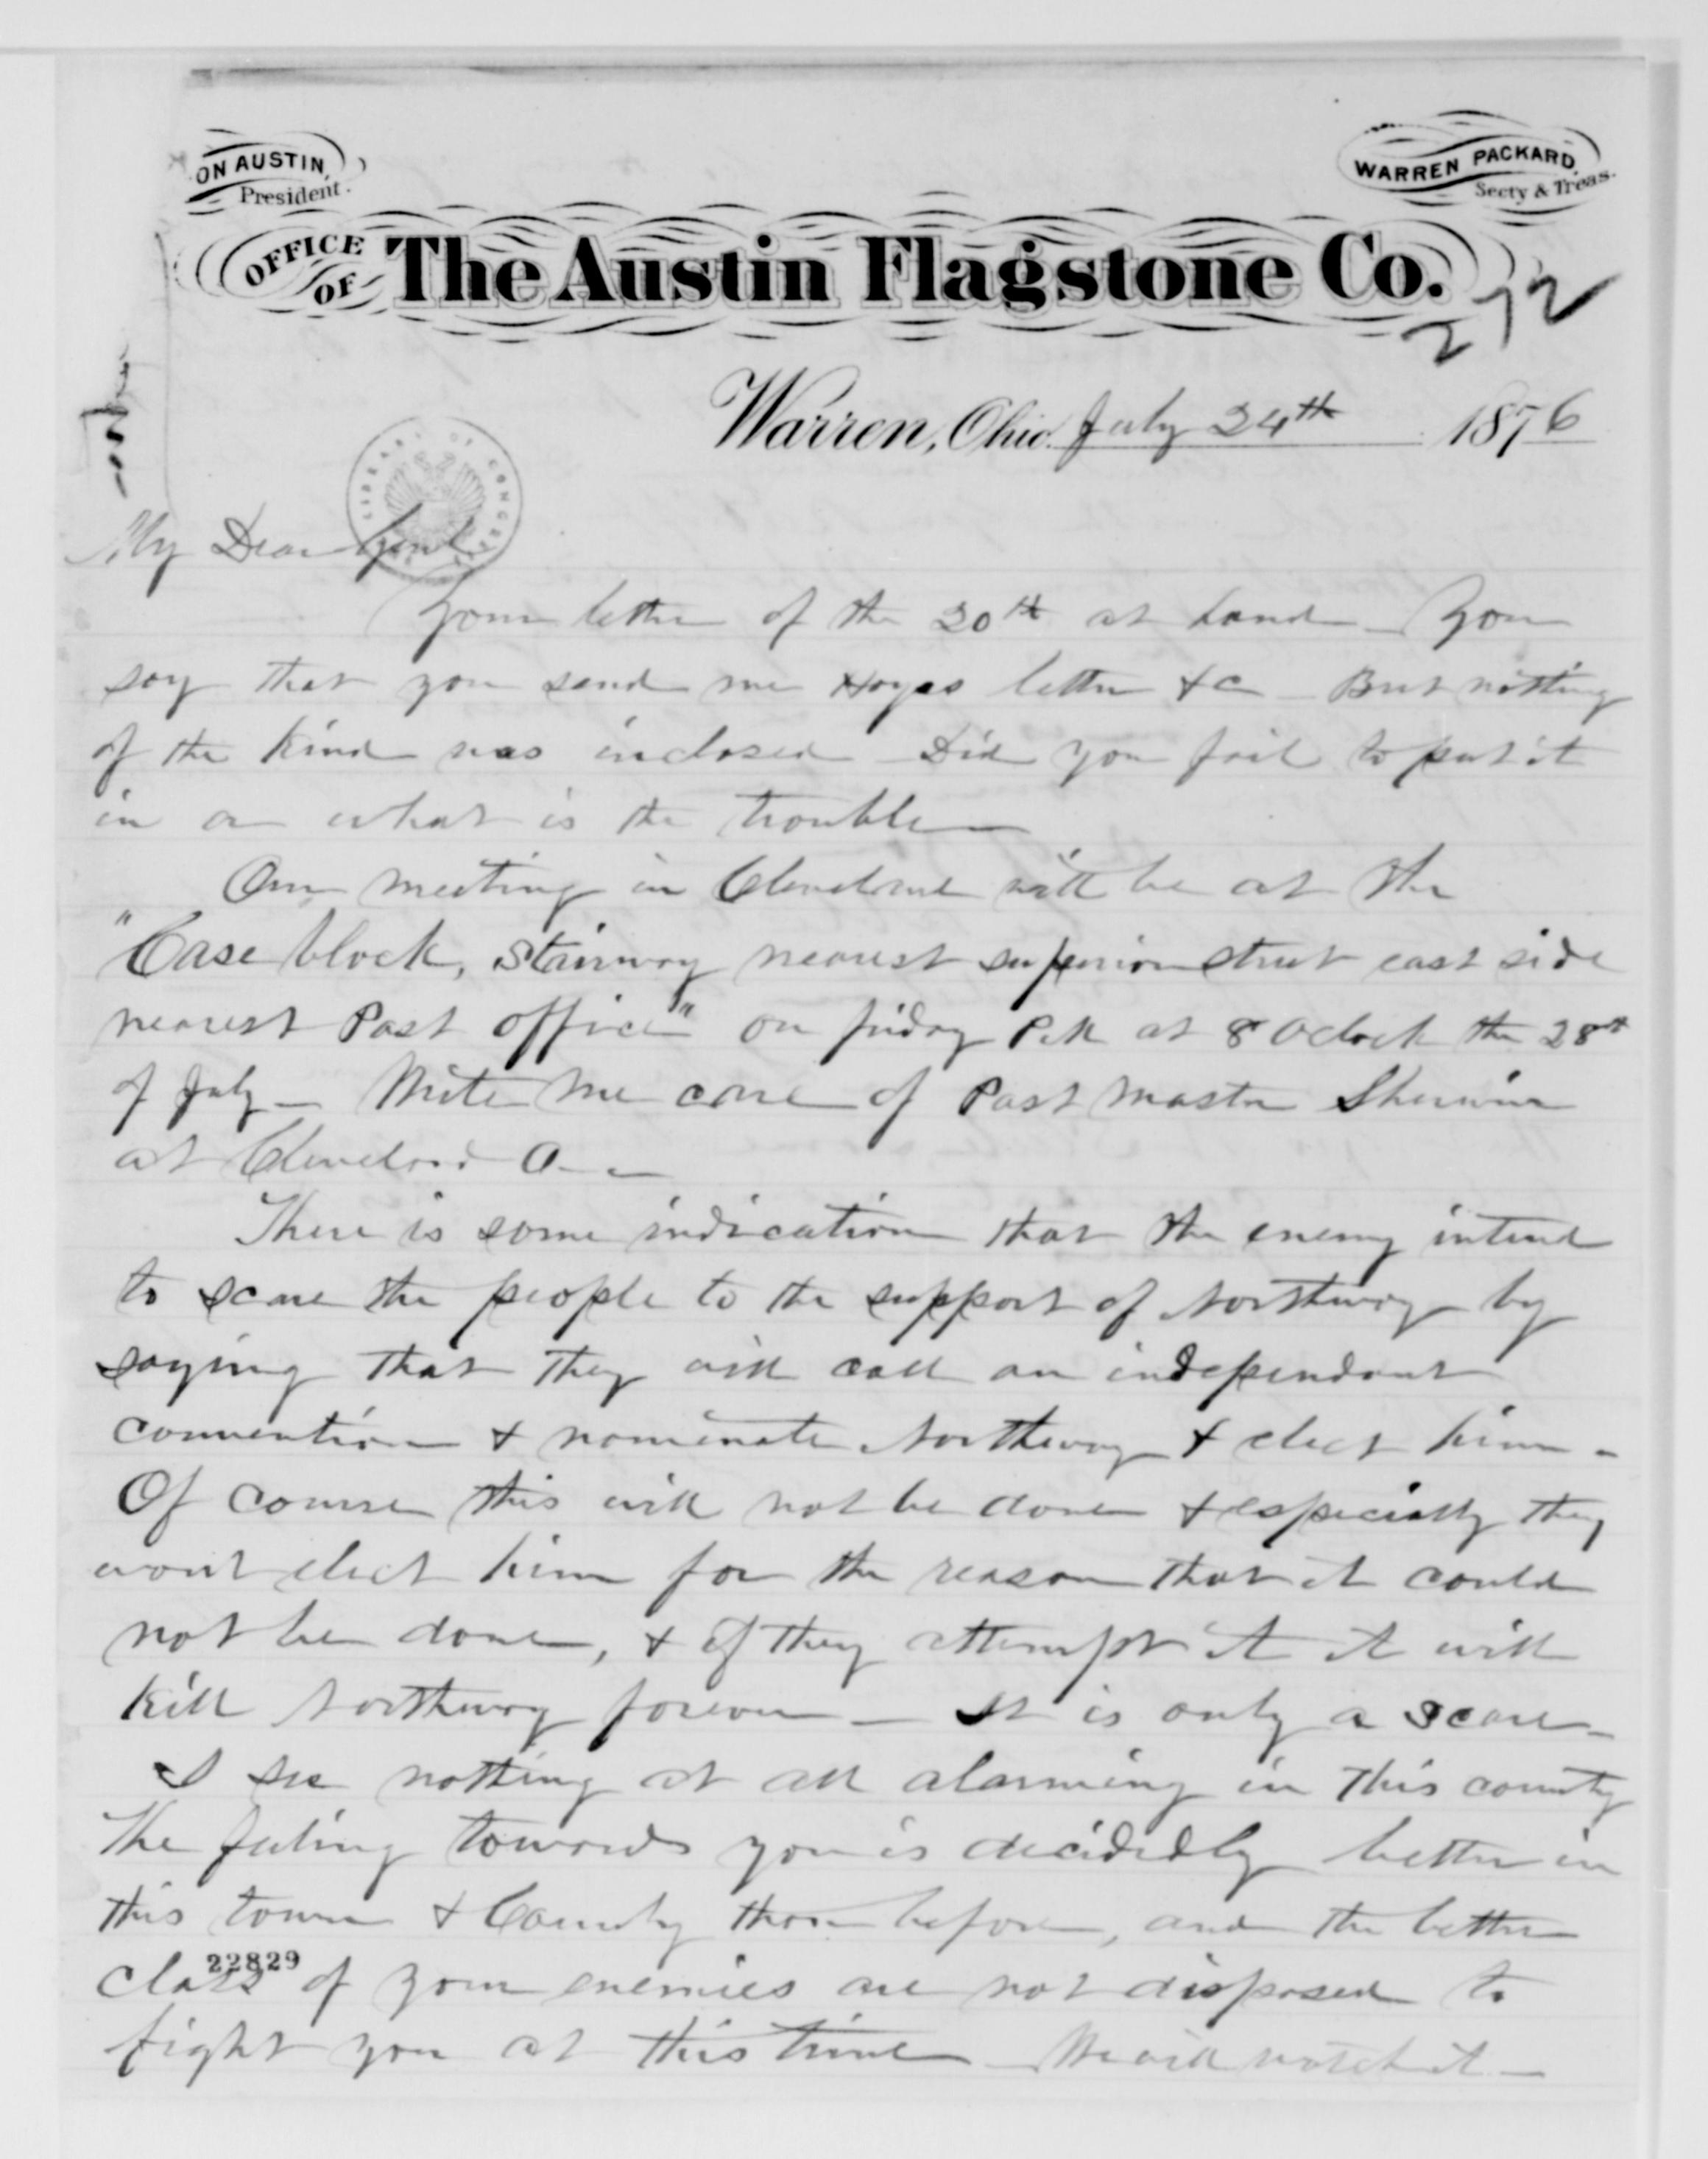 ON AUSTIN,
President.
WARREN PACKARD,
Secty & Treas.
OFFICE OF The Austin Flagstone Co.
272
Warren, Ohio. July 24th 1876
LIBRARY OF CONGRESS
My Dear Genl
Your letter of the 20th at hand - You
say that you send me Hoyas letter &c - But nothing
of the kind was inclosed - Did you fail to put it
in or what is the trouble
Our meeting in Cleveland will be at the
"Case block, Stairway nearest superior street east side
nearest Post office" on friday P.M at 8 Oclock the 28th
of July - Write me care of Post Master Sherwin
at Cleveland O -
There is some indication that the enemy intend
to scare the people to the support of Northway by
saying that they will call an independant
convention & nominate Northway & elect him -
Of course this will not be done & especially they
wont elect him for the reason that it could
not be done, & if they attempt it it will
kill Northway forever - It is only a scare -
I see nothing at all alarming in this county
The feeling towards you is decididly better in
this town & County than before, and the better
class of your enemies are not disposed to
22829
fight you at this time - We will watch it -